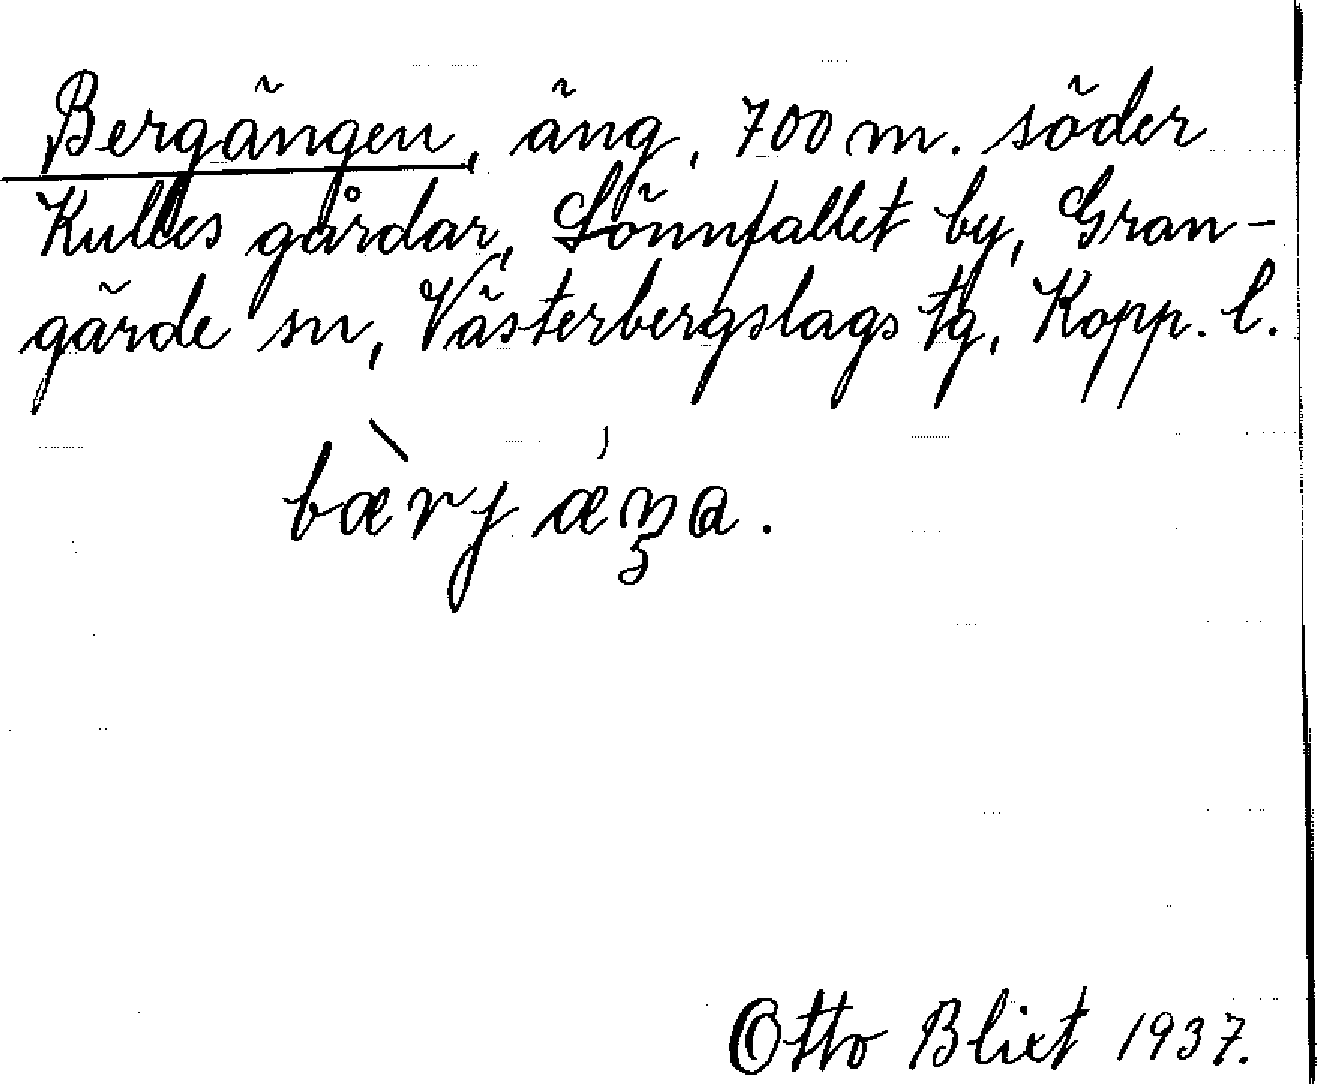 Bergängen, äng, 700 m. söder
Kulles gårdar, Lönnfallet by, Gran-
gärde sn, Västerbergslags tg, Kopp. l.
bæ̀rj ǽŋa.
Otto Blixt 1937.